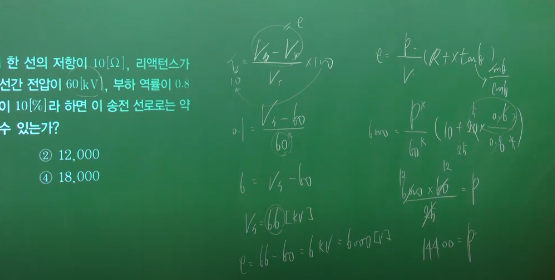 한 선의 저항이 10[Ω], 리액턴스가
선간 전압이 60[kV], 부하 역률이 0.8
이 10[%]라 하면 이 송전 선로로는 약
수 있는가?
② 12,000
④ 18,000
= e
Vs - Vr
Vr
×100
0.1 = Vs - 60
60
6 = Vs - 60
Vs = 66 [kV]
e = 66 - 60 = 6 kV = 6000 [V]
e = P/V (R + X tanθ)
sinθ
cosθ
6000 = P/60 (10 + 20 × 0.6/0.8)
6000 × 60
25
= P
14400 = P